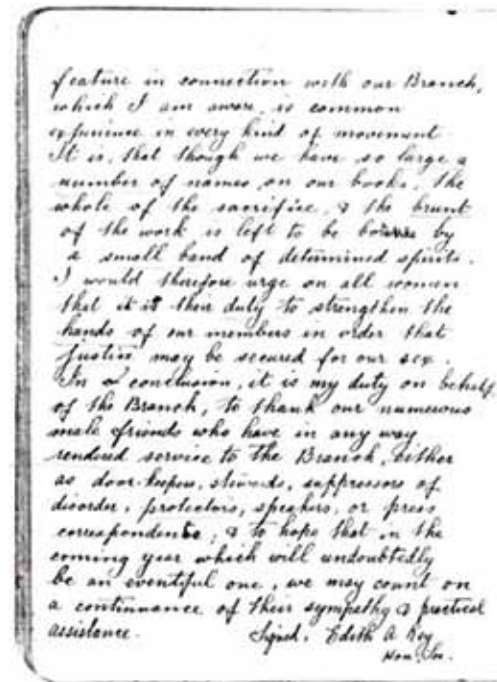 feature in connection with our Branch,
which I am aware, is common
experience in every kind of movement
It is, that though we have so large a
number of names on our books, the
whole of the sacrifice, & the brunt
of the work is left to be borne by
a small band of determined spirits.
I would therefore urge on all women
that it is their duty to strengthen the
hands of our members in order that
justice may be secured for our sex.
In conclusion, it is my duty on behalf
of the Branch, to thank our numerous
male friends who have in any way
rendered service to the Branch, either
as door-keepers, stewards, suppressors of
disorder, protectors, speakers, or press
correspondents; & to hope that in the
coming year which will undoubtedly
be an eventful one, we may count on
a continuance of their sympathy & practical
assistance. Signed. Edith A Key
Hon. Sec.